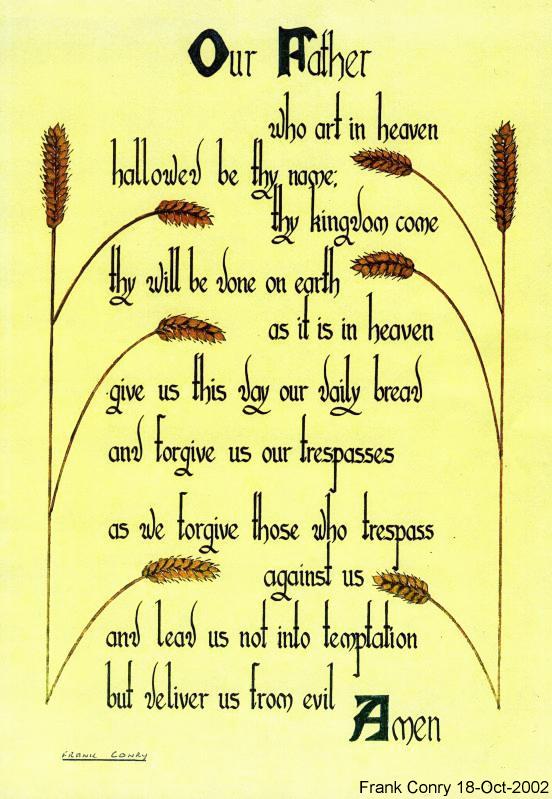 Our Father
who art in heaven
hallowed be thy name;
thy kingdom come
thy will be done on earth
as it is in heaven
give us this day our daily bread
and forgive us our trespasses
as we forgive those who trespass
against us
and lead us not into temptation
but deliver us from evil
Amen
FRANK CONRY
Frank Conry 18-Oct-2002